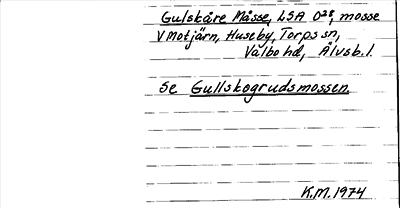 Gulskåre Måsse, LSA O28, mosse
V Motjärn, Huseby, Torps sn,
Valbo hd, Älvsb.l.
Se Gullskogrudsmossen.
K.M. 1974